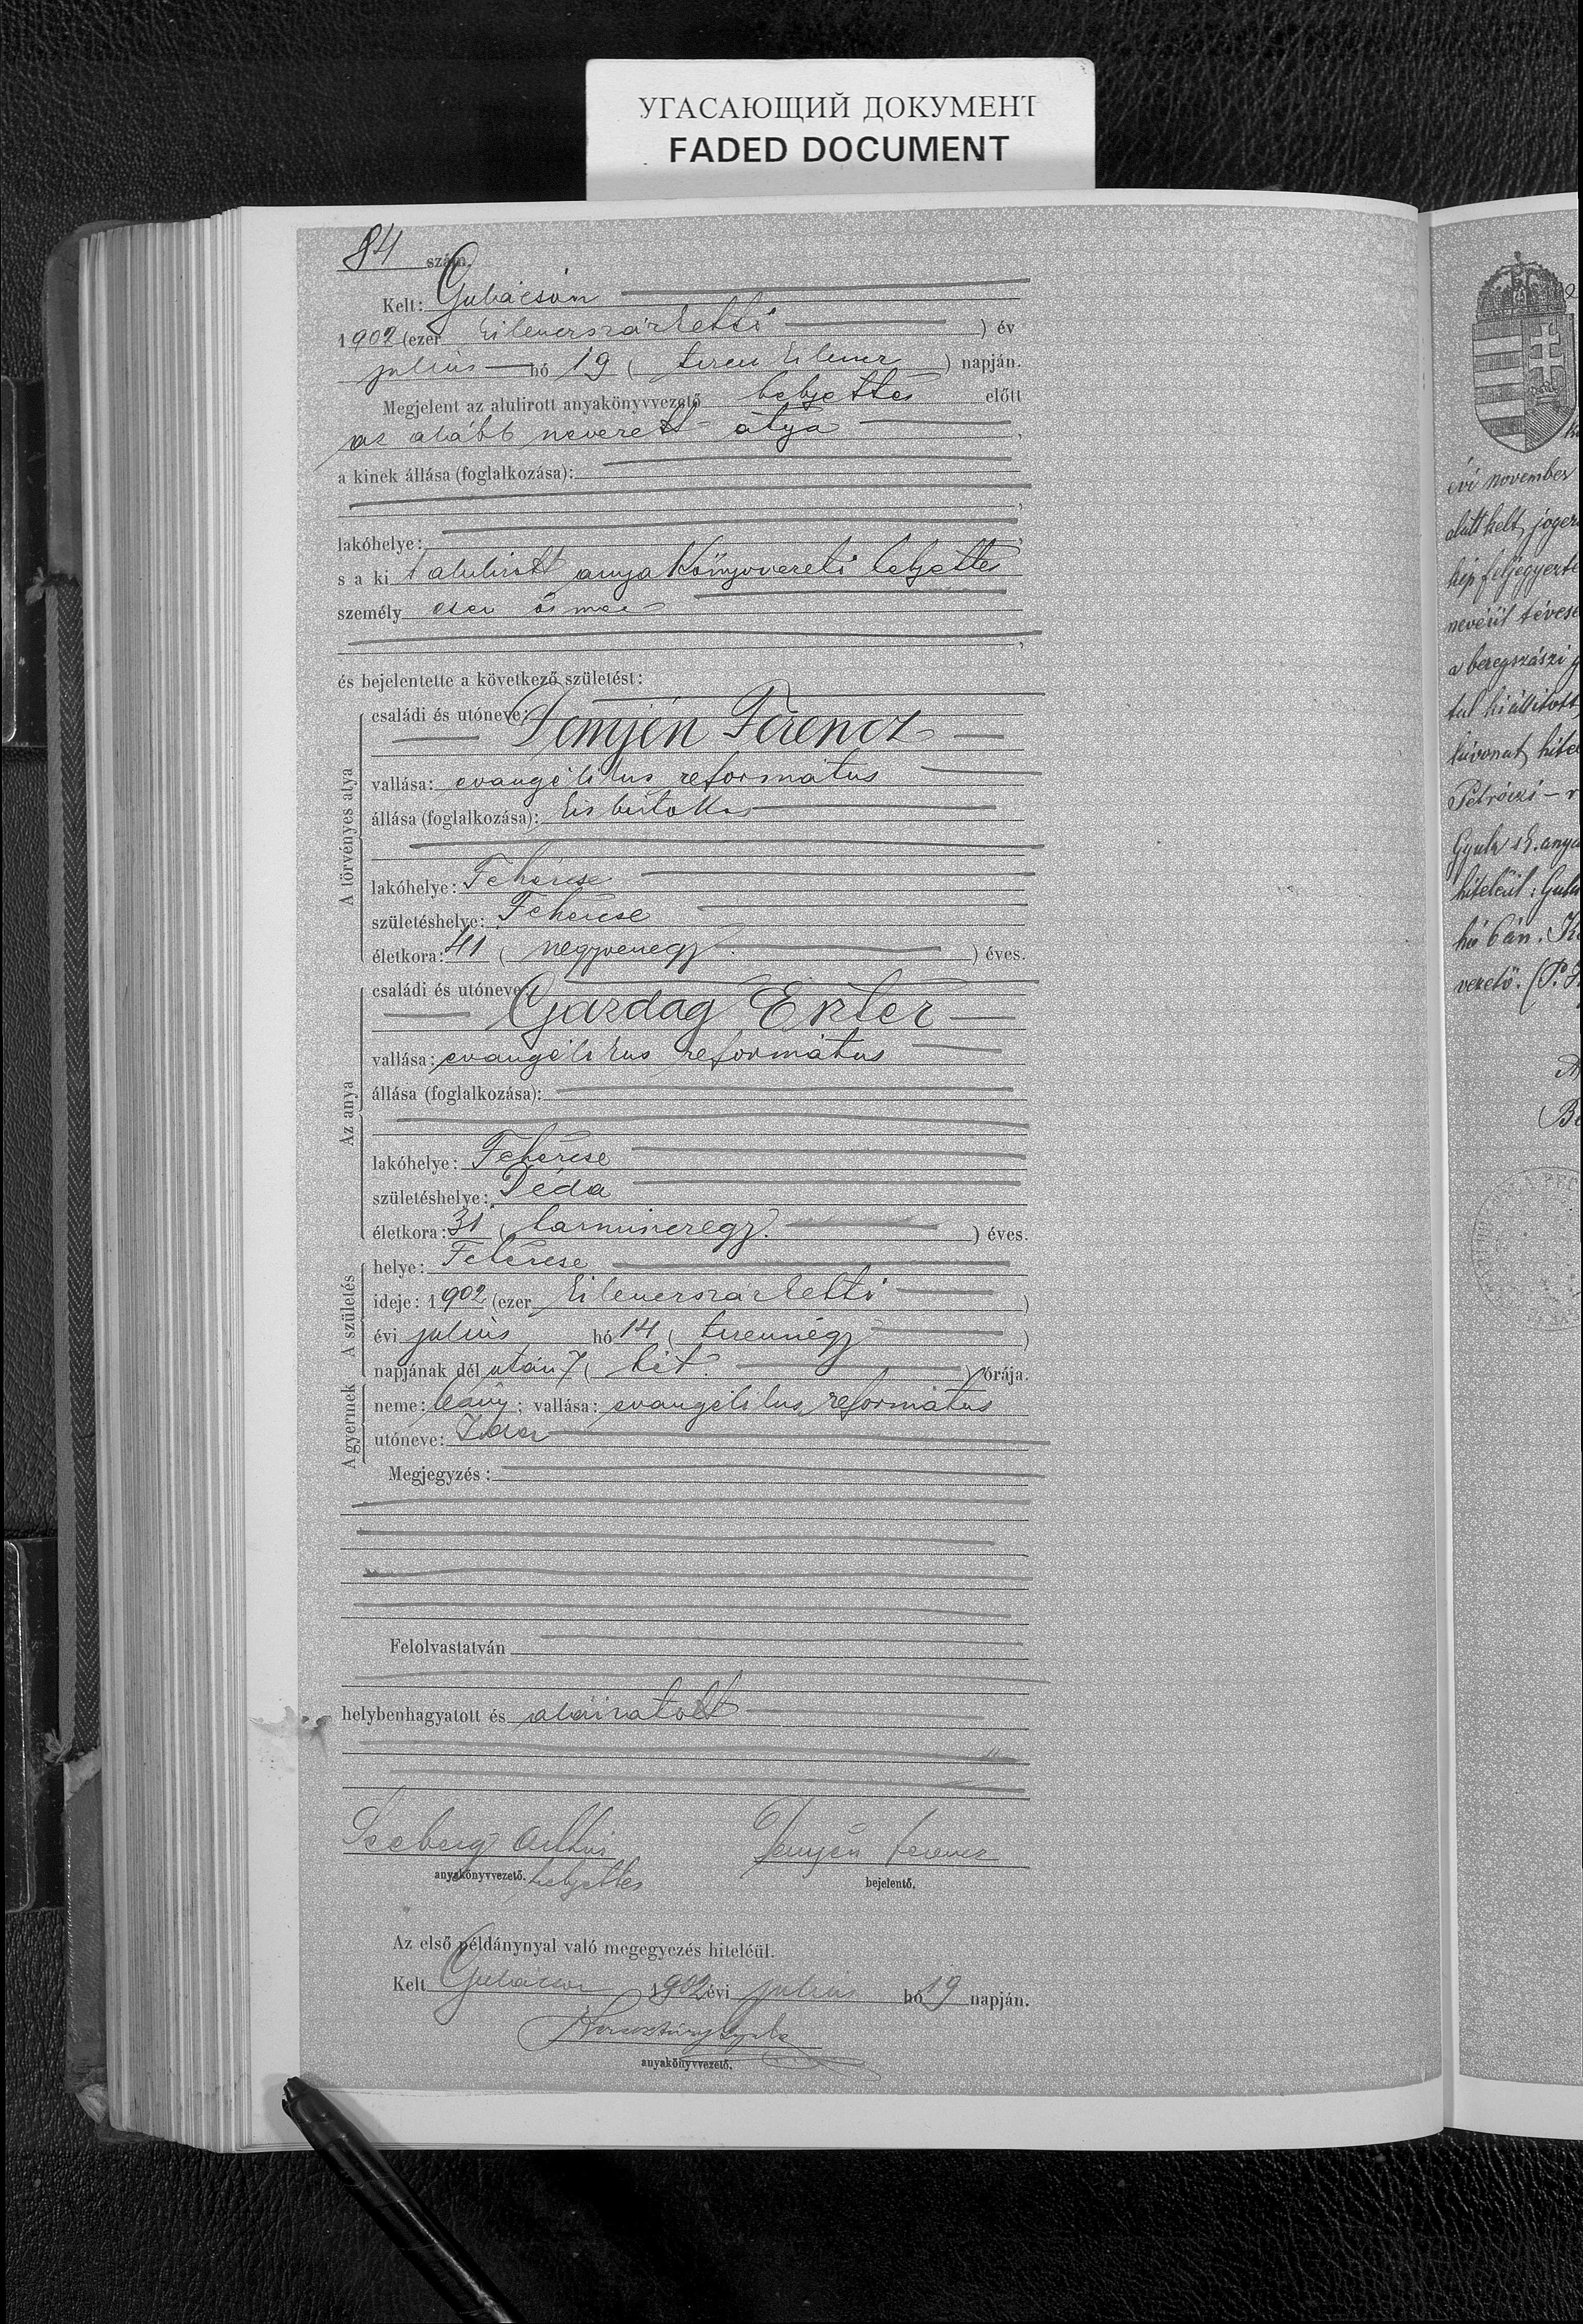 УГАСАЮЩИЙ ДОКУМЕНТ
FADED DOCUMENT
84 szám.
Kelt: Gulácson
1902 (ezer kilenczszázkettő ) év
julius hó 19 ( tizenkilencz ) napján.
Megjelent az alulirott anyakönyvvezető helyettes előtt
az alább nevezett atya ,
a kinek állása (foglalkozása):
lakóhelye:
s a ki t alulirott anyakönyvvezető helyettes
személyesen ösmer
és bejelentette a következő születést:
A törvényes atya
családi és utóneve:
Temjén Ferencz
vallása: evangélikus református
állása (foglalkozása): kisbirtokos
lakóhelye: Fehércse
születéshelye: Fehércse
életkora: 41 ( negyvenegy ) éves.
Az anya
családi és utóneve:
Gazdag Eszter
vallása: evangélikus református
állása (foglalkozása):
lakóhelye: Fehércse
születéshelye: Déda
életkora: 31 ( harminczegy. ) éves.
A születés
helye: Fehércse
ideje: 1902 (ezer kilenczszázkettő )
évi julius hó 14 ( tizennégy )
napjának dél után 7 ( hét. ) órája.
A gyermek
neme: leány; vallása: evangélikus református
utóneve: Ida
Megjegyzés:
Felolvastatván
helybenhagyatott és aláiratott
Seeberg
anyakönyvvezető. helyettes
Temjén Ferencz
bejelentő.
Az első példánynyal való megegyezés hiteléül.
Kelt Gulácson 1902 évi julius hó 19 napján.
anyakönyvvezető.
évi november
alatt kelt, joger
kép feljegyezte
nevéül tévese
a beregszászi
tal kiállitott
kivonat hite
Petróczi
Gyula sk. anya
hiteléül: Gul
hó 6án. K
vezető. (P.